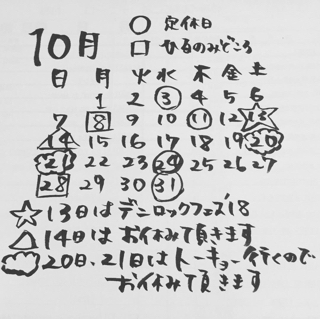 10月
○ 定休日
□ ひるのみどころ
日 月 火 水 木 金 土
1 2 3 4 5 6
7 8 9 10 11 12 13
14 15 16 17 18 19 20
21 22 23 24 25 26 27
28 29 30 31
☆ 13日はデニロックフェズ18
△ 14日はお休みて頂きます
20日、21日はトーキョー行くので
お休みて頂きます